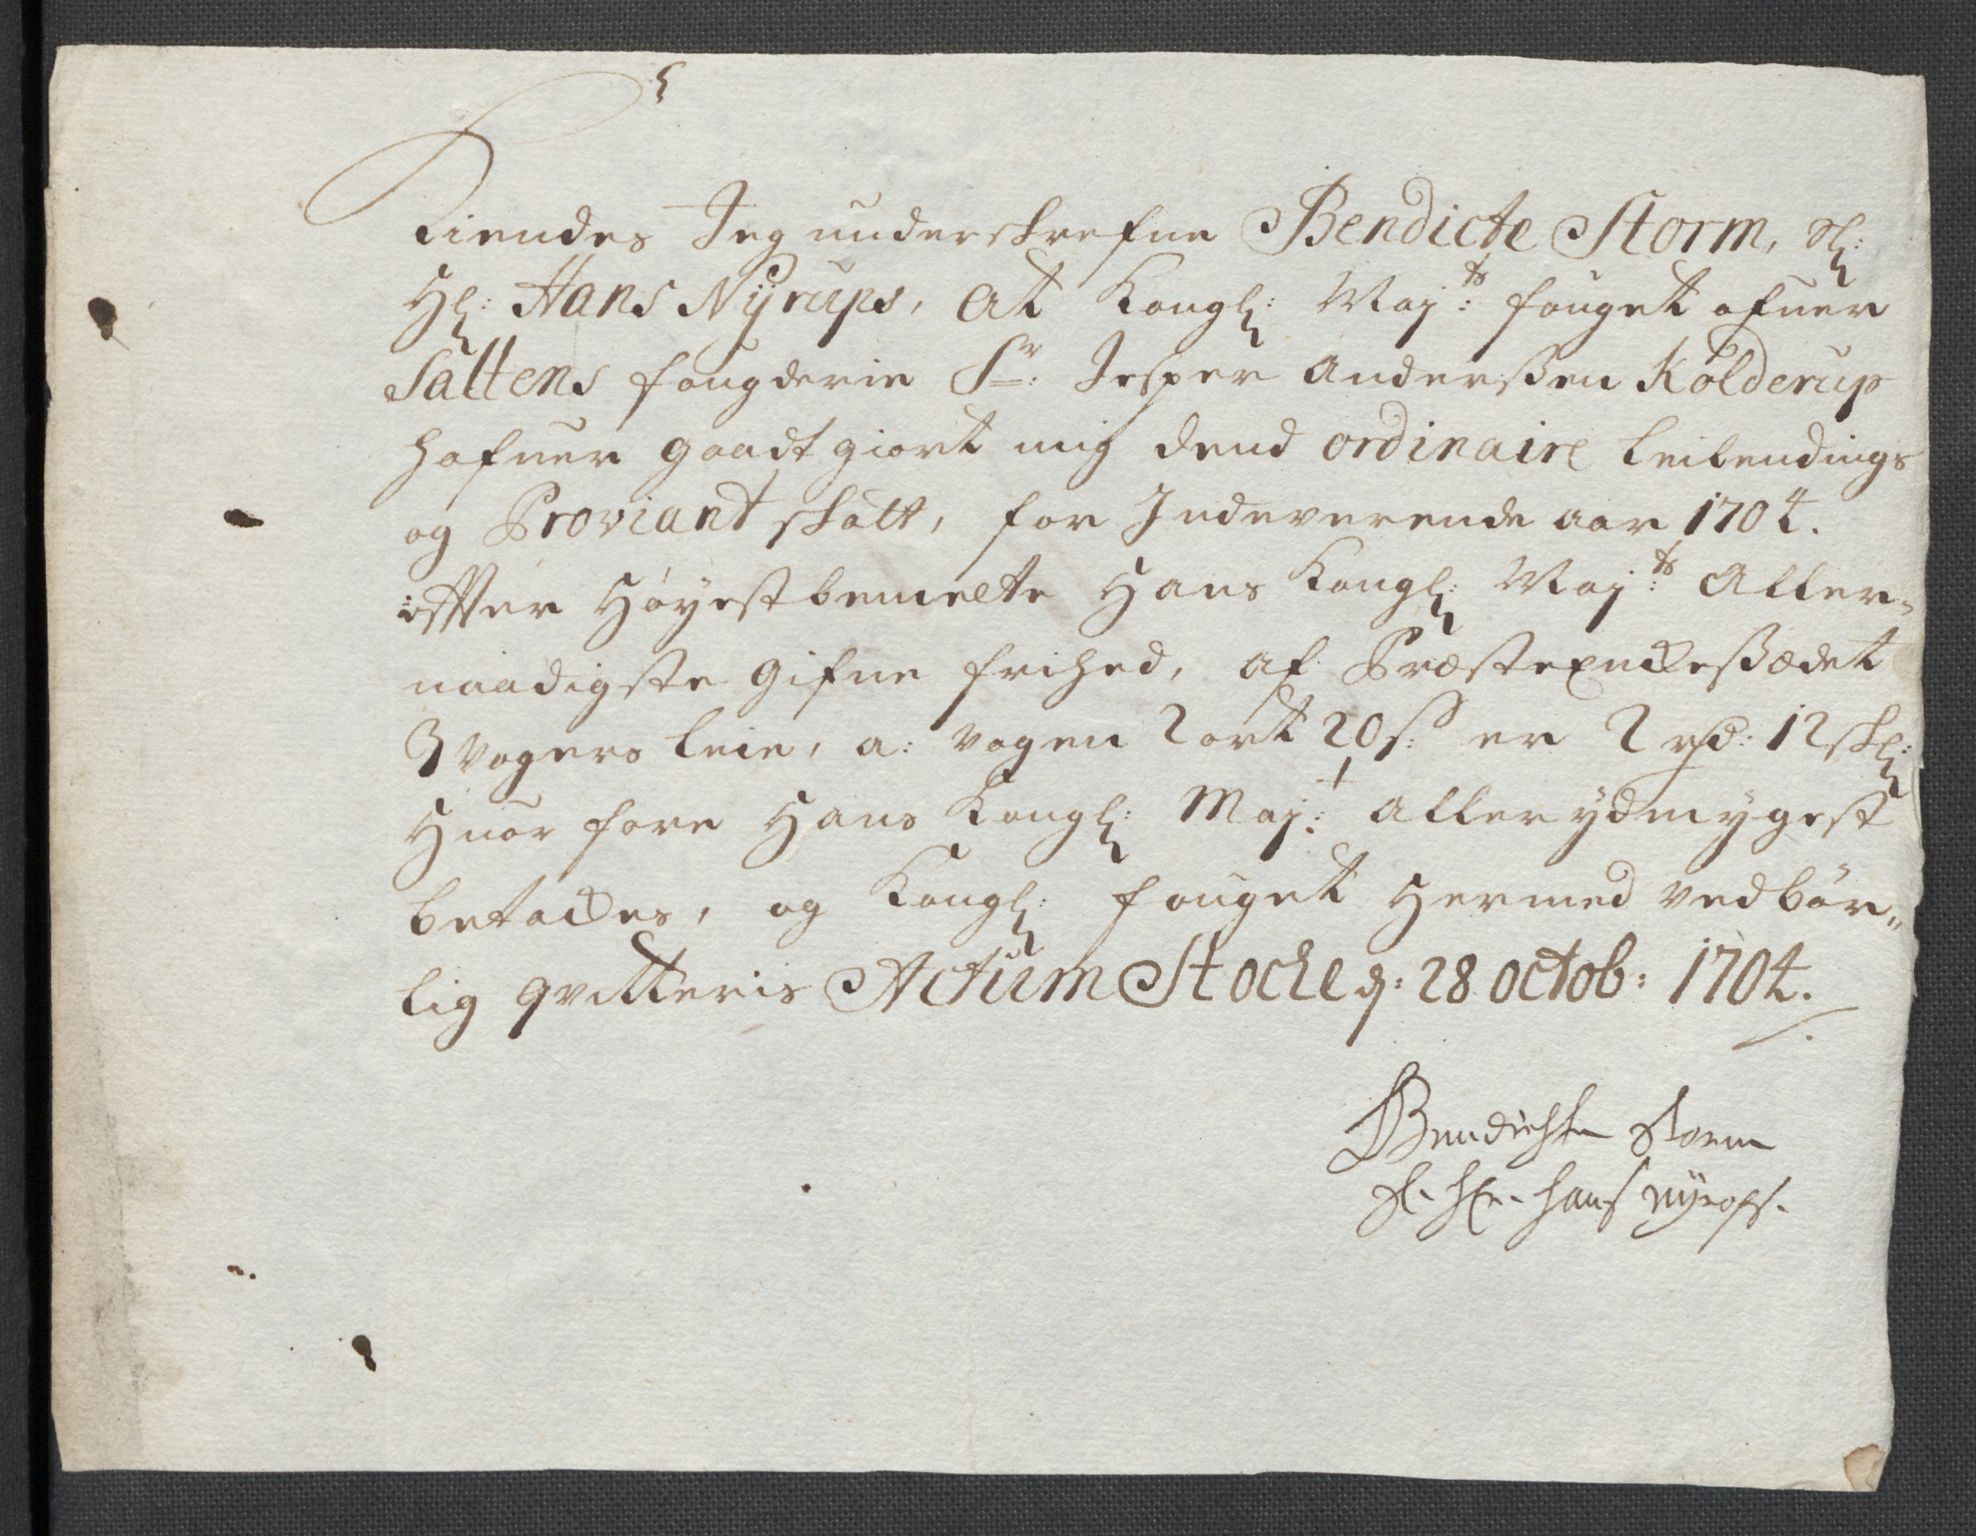 Kiendes Jeg underskrefne Bendicte Storm, Sl:
Hl: Hans Nÿrups, At Kongl: Maj:ts fouget ofuer
Saltens fougderie Sr: Jesper Anderßen Kolderup
hafuer gaadtgiort mig dend ordinaire Leilendings
og Proviant skatt, for Indeverende aar 1704.
effter Høyestbemelte Hans Kongl: Maj:ts Aller-
naadigste gifne frihed, af Præsteenckeßædet
3 vogers leie, a: vogen 2 ort 20 s: er 2 rd: 12 skl:
Huor fore Hans Kongl: Maj:t allerydmygest
betackes, og Kongl: fouget Hermed vedbør-
lig qvitteris Actum Stocke d: 28 octob: 1704.
Bendichte Storm
Sl. Hr. Hans Nyrops.